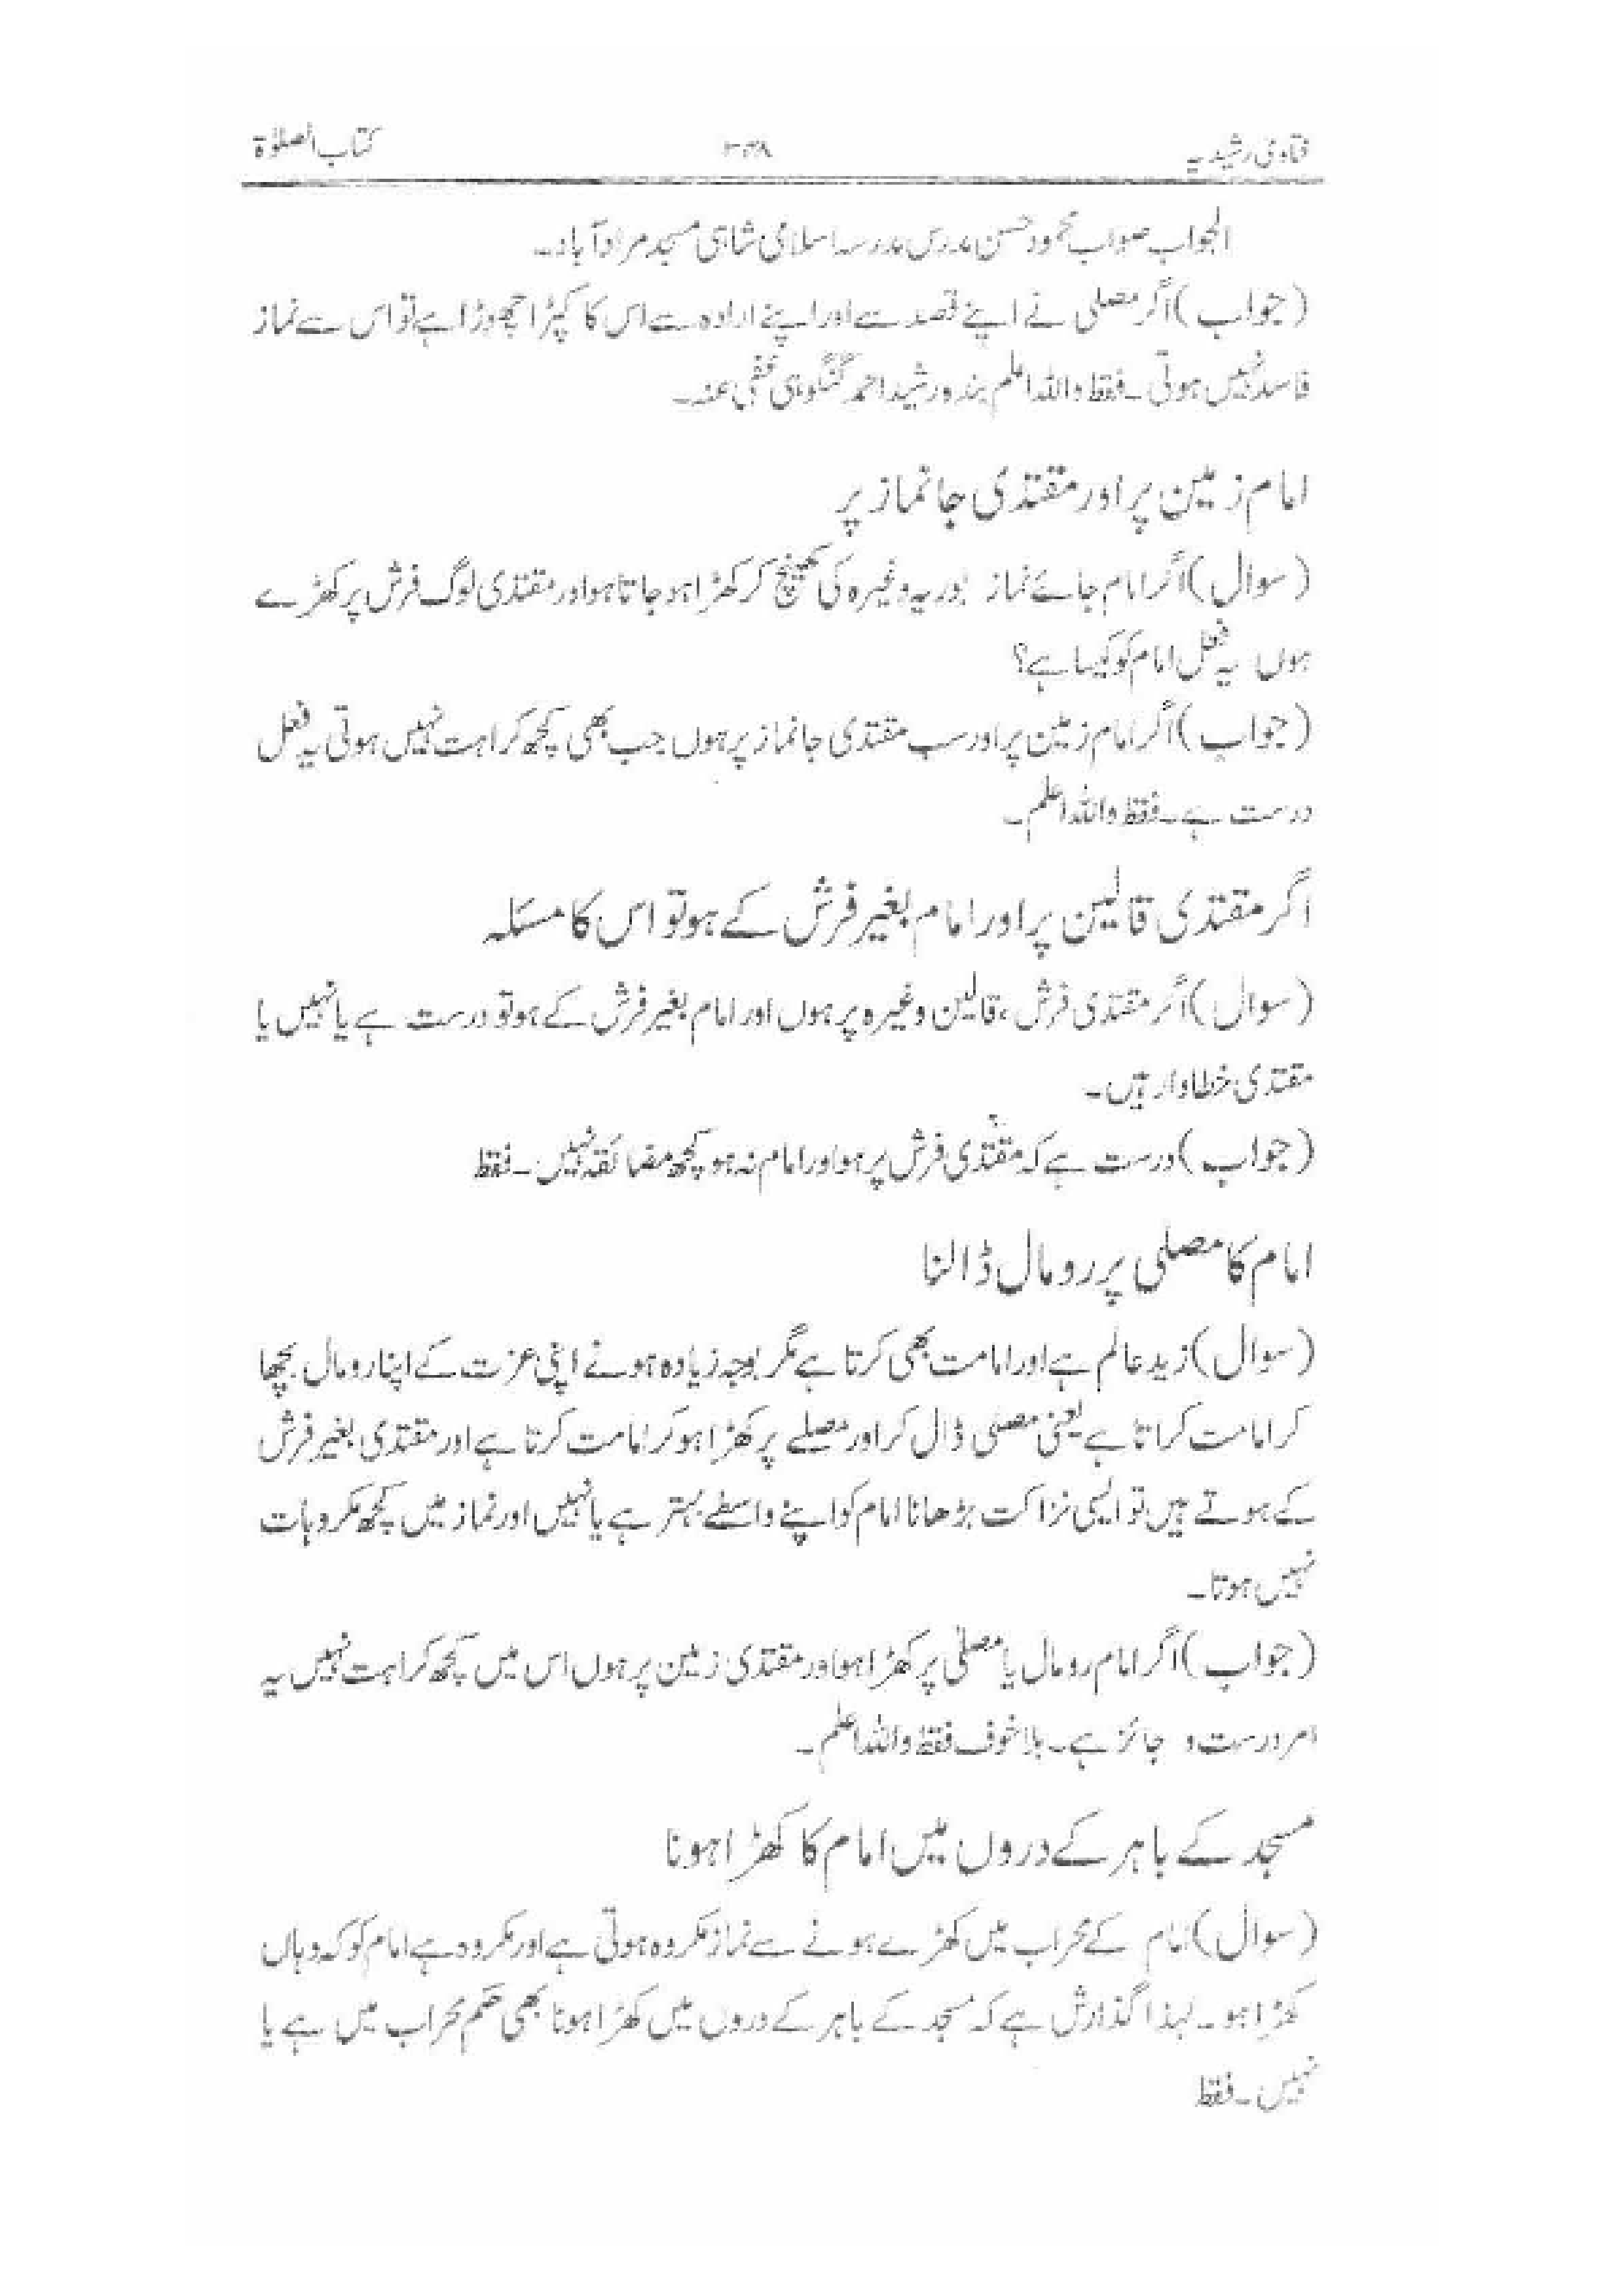 فتاویٰ رشیدیہ ۳۳۸ کتاب الصلوٰۃ
الجواب صواب محمود حسن مدرس مدرسہ اسلامی شاہی مسجد مرادآباد۔
(جواب) اگر مصلی نے اپنے قصد سے اور اپنے ارادہ سے اس کا کپڑا چھوڑا ہے تو اس سے نماز
فاسد نہیں ہوتی۔ فقط واللہ اعلم بندہ رشید احمد گنگوہی عفی عنہ۔
امام زمین پر اور مقتدی جانماز پر
(سوال) اگر امام جائے نماز بوریہ وغیرہ کی کھینچ کر کھڑا ہو جاتا ہو اور مقتدی لوگ فرش پر کھڑے
ہوں یہ فعل امام کو کیسا ہے؟
(جواب) اگر امام زمین پر اور سب مقتدی جانماز پر ہوں جب بھی کچھ کراہت نہیں ہوتی یہ فعل
درست ہے۔ فقط واللہ اعلم۔
اگر مقتدی قالین پر اور امام بغیر فرش کے ہو تو اس کا مسئلہ
(سوال) اگر مقتدی فرش، قالین وغیرہ پر ہوں اور امام بغیر فرش کے ہو تو درست ہے یا نہیں یا
مقتدی خطاوار ہیں۔
(جواب) درست ہے کہ مقتدی فرش پر ہو اور امام نہ ہو کچھ مضائقہ نہیں۔ فقط
امام کا مصلی پر رومال ڈالنا
(سوال) زید عالم ہے اور امامت بھی کرتا ہے مگر بوجہ زیادہ ہونے اپنی عزت کے اپنا رومال بچھا
کر امامت کراتا ہے یعنی مصلی ڈال کر اور مصلے پر کھڑا ہو کر امامت کرتا ہے اور مقتدی بغیر فرش
کے ہوتے ہیں تو ایسی نزاکت بڑھانا امام کو اپنے واسطے بہتر ہے یا نہیں اور نماز میں کچھ مکروہات
نہیں ہوتا۔
(جواب) اگر امام رومال یا مصلٰی پر کھڑا ہو اور مقتدی زمین پر ہوں اس میں کچھ کراہت نہیں یہ
امر درست و جائز ہے۔ بلا خوف فقط واللہ اعلم۔
مسجد کے باہر کے دروں میں امام کا کھڑا ہونا
(سوال) امام کے محراب میں کھڑے ہونے سے نماز مکروہ ہوتی ہے اور مکروہ ہے امام کو کہ وہاں
کھڑا ہو۔ لہذا گذارش ہے کہ مسجد کے باہر کے دروں میں کھڑا ہونا بھی حکم محراب میں ہے یا
نہیں۔ فقط